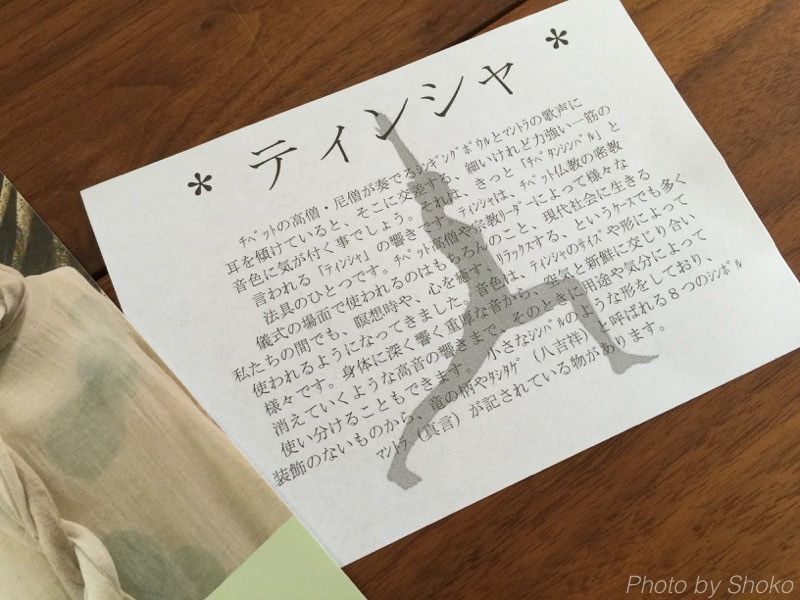 * ティンシャ *
ﾁﾍﾞｯﾄの高僧・尼僧が奏でるｼﾝｷﾞﾝｸﾞﾎﾞｳﾙとﾏﾝﾄﾗの歌声に
耳を傾けていると、そこに交差する、細いけれど力強い一筋の
音色に気が付く事でしょう。それは、きっと「ﾁﾍﾞﾀﾝｼﾝﾊﾞﾙ」と
言われる「ﾃｨﾝｼｬ」の響きです。ﾃｨﾝｼｬは、ﾁﾍﾞｯﾄ仏教の密教
法具のひとつです。ﾁﾍﾞｯﾄ高僧や宗教ﾘｰﾀﾞｰによって様々な
儀式の場面で使われるのはもちろんのこと、現代社会に生きる
私たちの間でも、瞑想時や、心を癒す、ﾘﾗｯｸｽする、というｹｰｽでも多く
使われるようになってきました。音色は、ﾃｨﾝｼｬのｻｲｽﾞや形によって
様々です。身体に深く響く重厚な音から、空気と新鮮に交じり合い
消えていくような高音の響きまで、そのときに用途や気分によって
使い分けることもできます。小さなｼﾝﾊﾞﾙのような形をしており、
装飾のないものから、竜の柄やﾀｼﾀｹﾞ（八吉祥）と呼ばれる８つのｼﾝﾎﾞﾙ
ﾏﾝﾄﾗ（真言）が記されている物があります。
Photo by Shoko